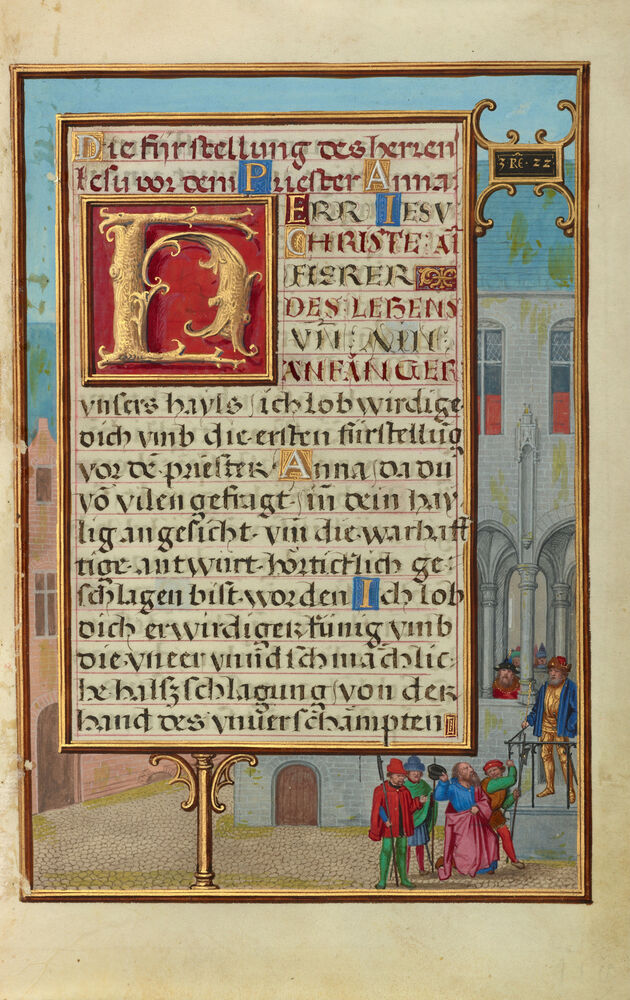 Die fürstellung des herren
Iesu vor dem Priester Anna·
3 RE· 22
HERR IESV
CHRISTE: AI
FIERER
DES LEBENS
VN̄ AIN
ANFÄNGER
vnsers hayls / ich lob wirdige
dich vmb die ersten fürstellūg
vor dē priester Anna / da dū
vō vilen gefragt· in̄ dein hay
lig angesicht· vn̄ die warhafft
tige· antwurt· hörticklich ge:
schlagen bist· worden Ich lob
dich erwirdiger künig vmb
die vneer vnnd schmächlic:
he halszschlagung / von der
hand des vnuerschampten